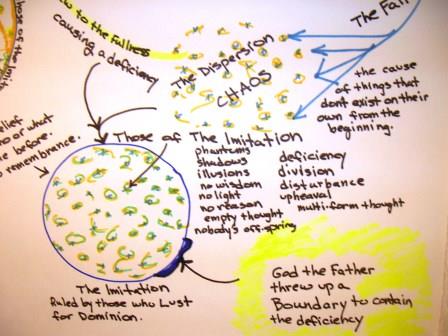 w to the Fullness
causing a deficiency
The Dispersion
CHAOS
The Fall
the cause
of things that
dont exist on their
own from the
beginning.
hose of the Imita
elief
no or what
re before.
o remembrance.
Those of The Imitation
phantoms
shadows
illusions
no wisdom
no light
no reason
empty thought
nobody's off-spring
deficiency
division
disturbance
upheaval
multi-form thought
The Imitation
Ruled by those who Lust
for Dominion.
God the Father
threw up a
Boundary to contain
the deficiency